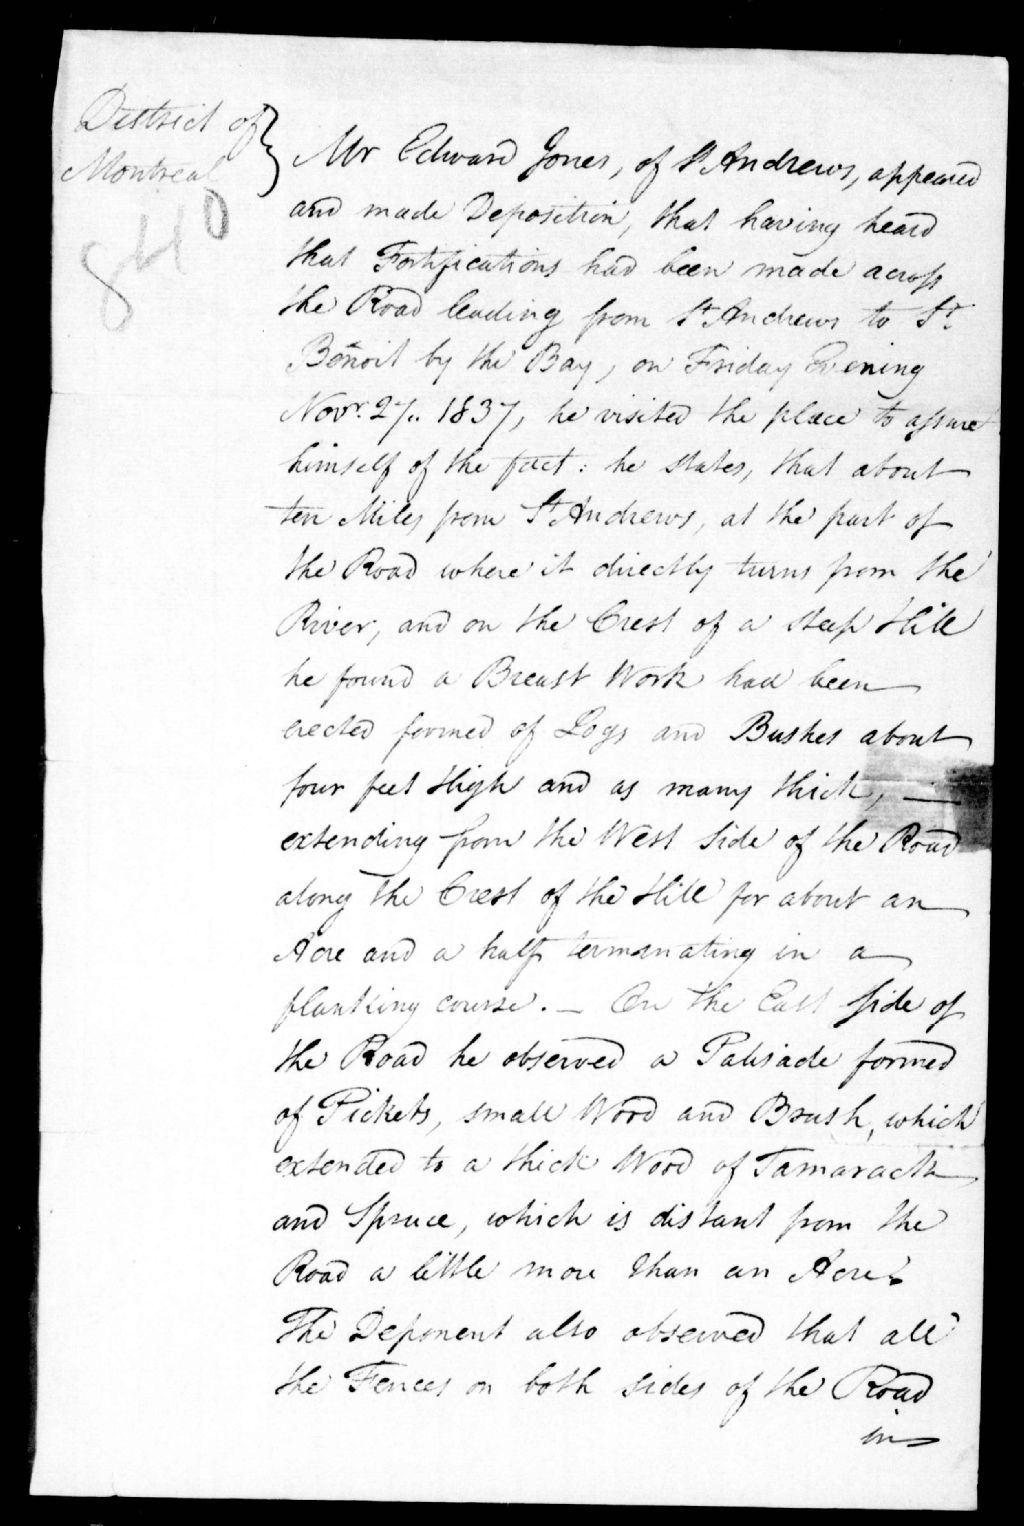 District of
Montreal
840
Mr Edward Jones, of St Andrews, appeared
and made Deposition, that having heard
that Fortifications had been made across
the Road leading from St Andrews to St.
Benoit by the Bay, on Friday Evening
Novr. 27.. 1837, he visited the place to assure
himself of the fact: he states, that about
ten Miles from St Andrews, at the part of
the Road where it directly turns from the
River, and on the Crest of a steep Hill
he found a Breast Work had been
erected formed of Logs and Bushes about
four feet High and as many thick, —
extending from the West Side of the Road
along the Crest of the Hill for about an
Acre and a half termanating in a
flanking course. — On the East Side of
the Road he observed a Palisade formed
of Pickets, small Wood and Brush, which
extended to a thick Wood of Tamarack
and Spruce, which is distant from the
Road a little more than an Acre.
The Deponent also observed that all
the Fences on both sides of the Road
in